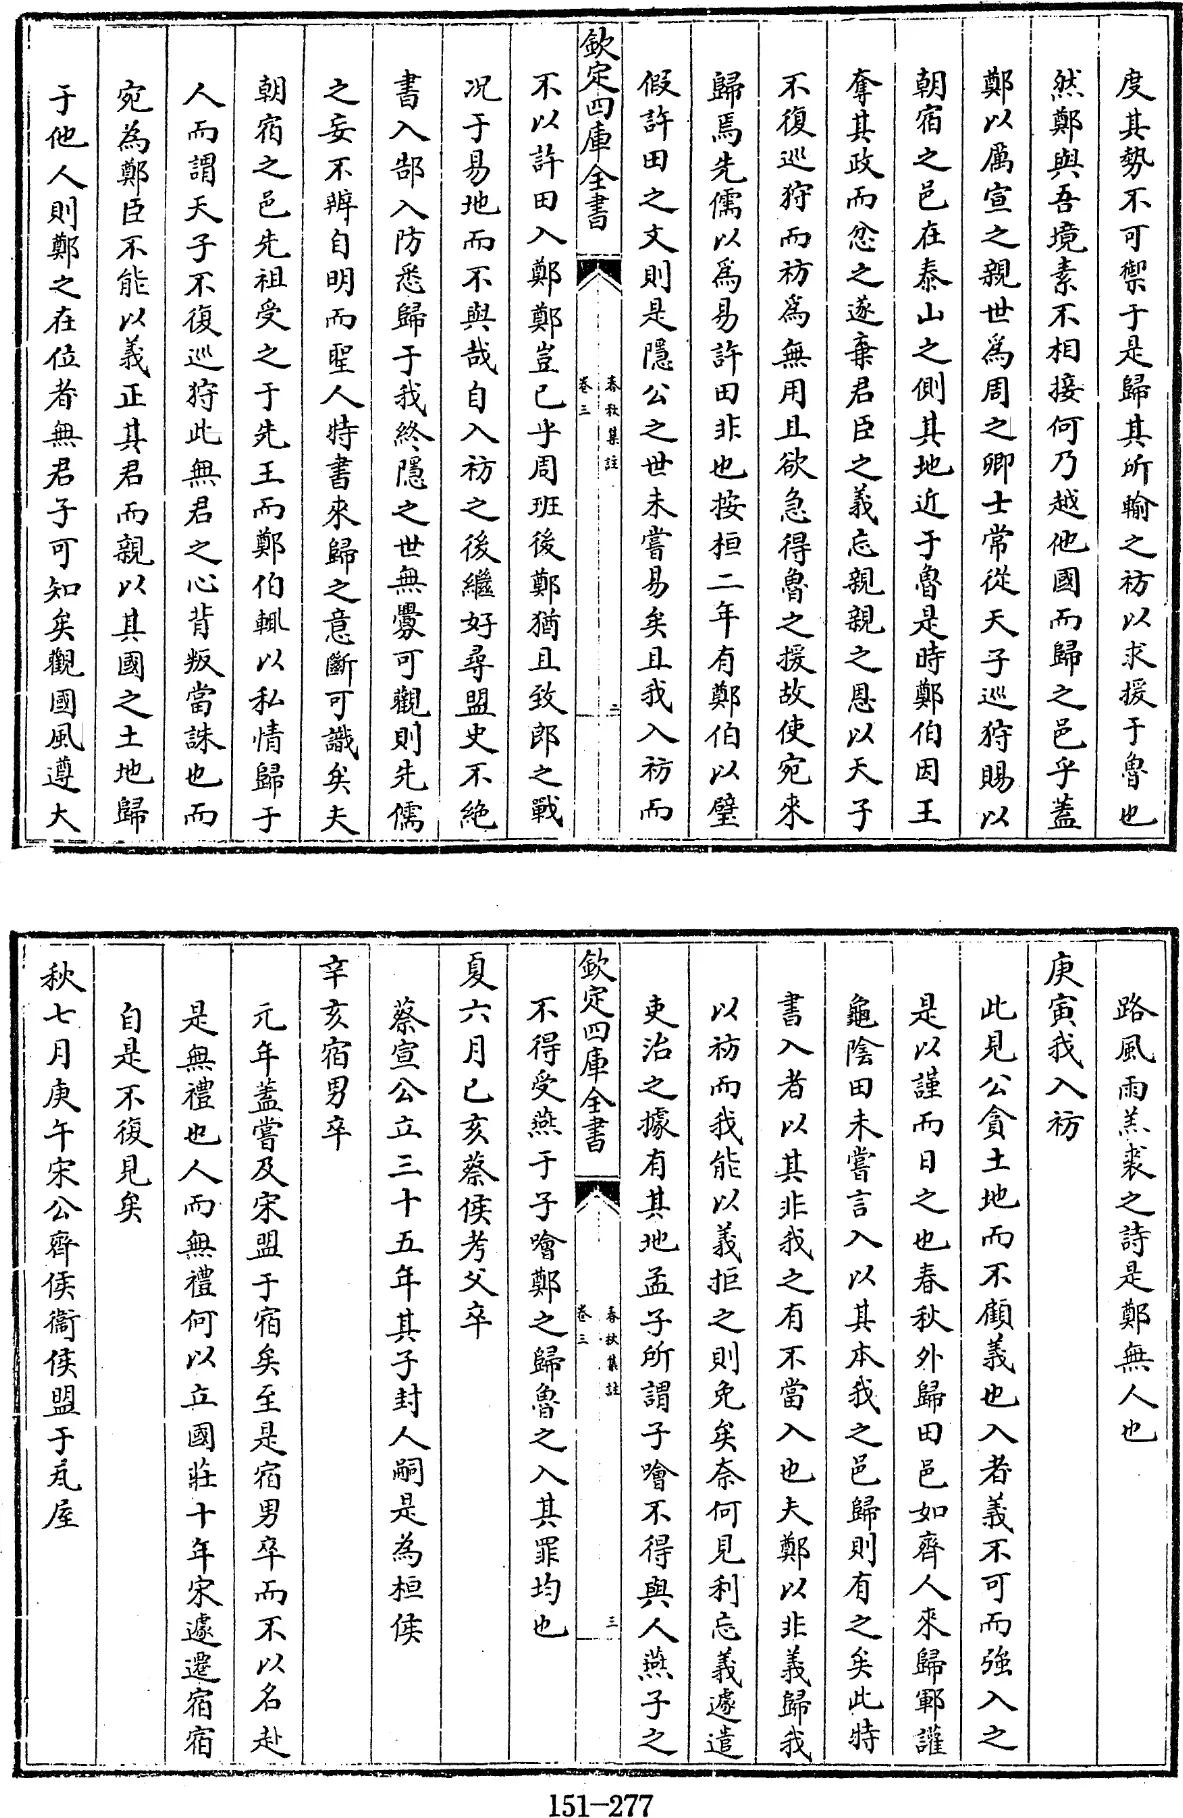 度其勢不可禦于是歸其所輸之祊以求援于魯也
然鄭與吾境素不相接何乃越他國而歸之邑乎蓋
鄭以厲宣之親世爲周之卿士常從天子巡狩賜以
朝宿之邑在泰山之側其地近于魯是時鄭伯因王
奪其政而忿之遂棄君臣之義忘親親之恩以天子
不復巡狩而祊爲無用且欲急得魯之援故使宛來
歸焉先儒以爲易許田非也按桓二年有鄭伯以璧
假許田之文則是隱公之世未嘗易矣且我入祊而
欽定四庫全書
春秋集註
卷三
二
不以許田入鄭鄭豈已乎周班後鄭猶且致郎之戰
况于易地而不與哉自入祊之後繼好尋盟史不絶
書入郜入防悉歸于我終隱之世無釁可觀則先儒
之妄不辨自明而聖人特書來歸之意斷可識矣夫
朝宿之邑先祖受之于先王而鄭伯輒以私情歸于
人而謂天子不復巡狩此無君之心背叛當誅也而
宛為鄭臣不能以義正其君而親以其國之土地歸
于他人則鄭之在位者無君子可知矣觀國風遵大
路風雨羔裘之詩是鄭無人也
庚寅我入祊
此見公貪土地而不顧義也入者義不可而強入之
是以謹而日之也春秋外歸田邑如齊人來歸鄆讙
龜陰田未嘗言入以其本我之邑歸則有之矣此特
書入者以其非我之有不當入也夫鄭以非義歸我
以祊而我能以義拒之則免矣奈何見利忘義遽遣
吏治之據有其地孟子所謂子噲不得與人燕子之
欽定四庫全書
春秋集註
卷三
三
不得受燕于子噲鄭之歸魯之入其罪均也
夏六月已亥蔡侯考父卒
蔡宣公立三十五年其子封人嗣是為桓侯
辛亥宿男卒
元年蓋嘗及宋盟于宿矣至是宿男卒而不以名赴
是無禮也人而無禮何以立國莊十年宋遽遷宿宿
自是不復見矣
秋七月庚午宋公齊侯衞侯盟于瓦屋
151-277